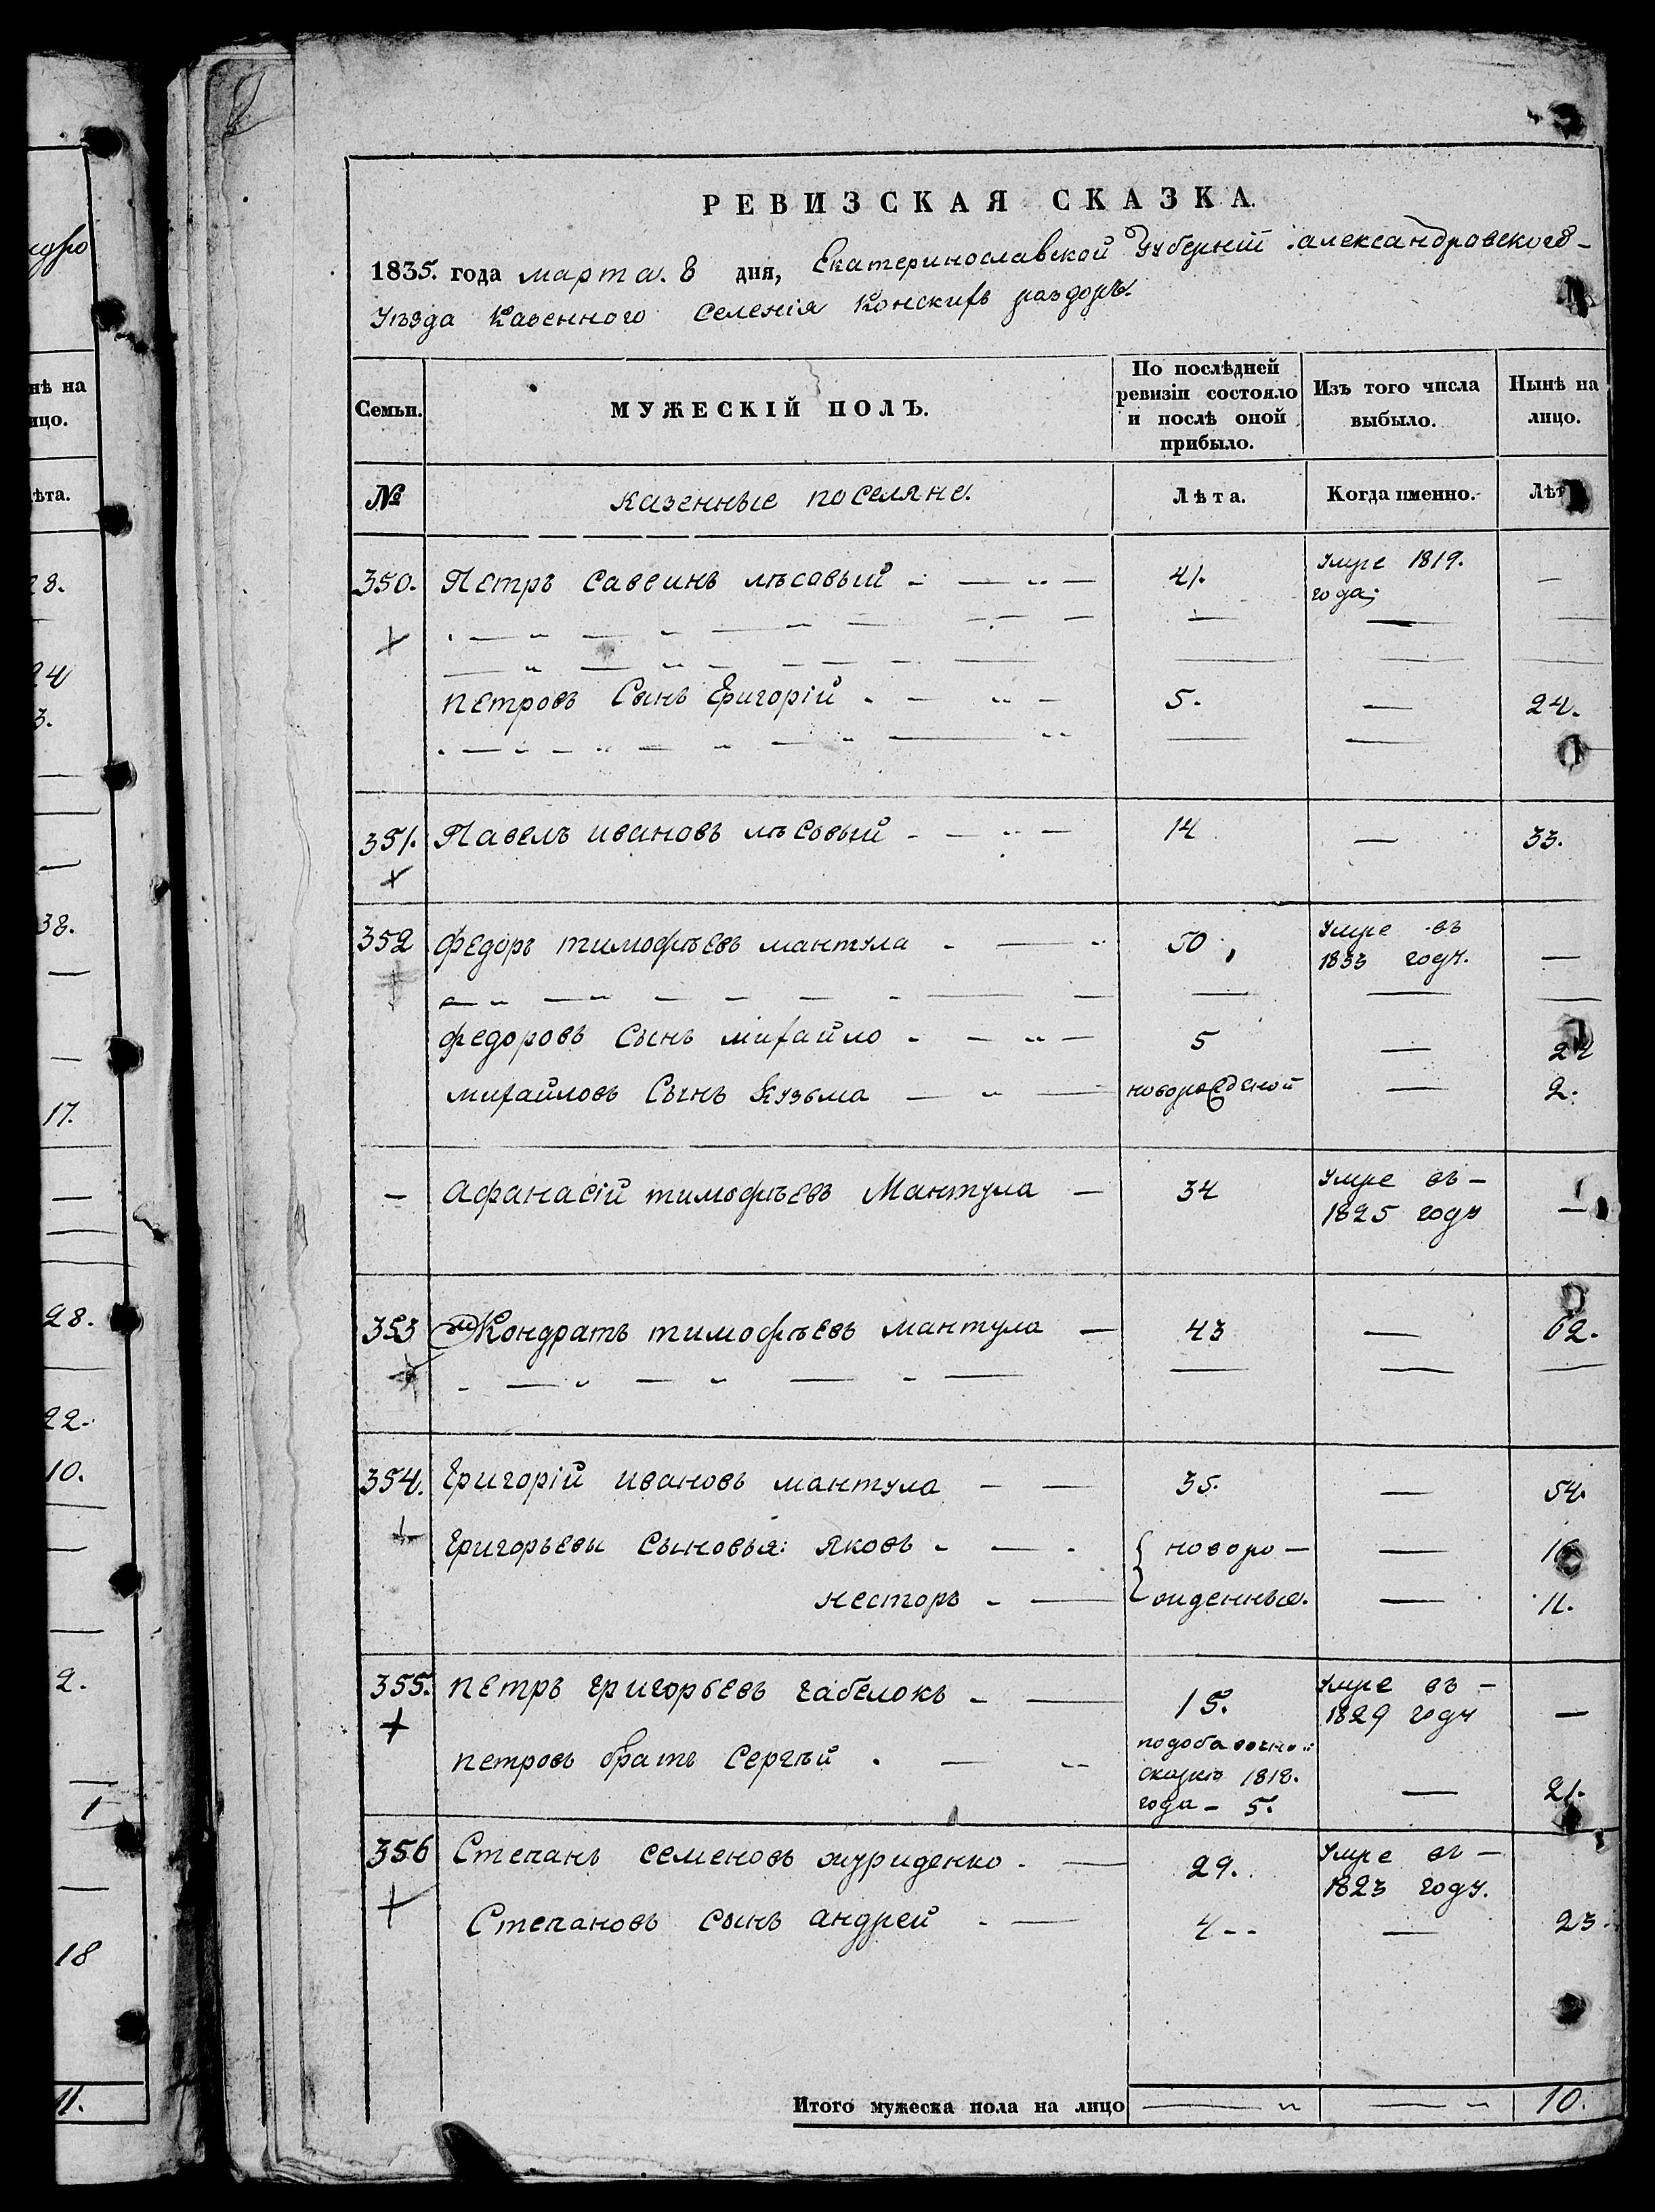 ндро
нѣ на
ицо.
ѣта.
28.
24
3.
38.
17.
28.
22.
10.
2.
1
18
11.
РЕВИЗСКАЯ СКАЗКА.
1835. года марта. 8 дня, Екатеринославской Губерніи александровского-
Уѣзда Казенного селенія Конскихъ раздоръ.
Семьи. МУЖЕСКІЙ ПОЛЪ. По послѣдней ревизіи состояло и послѣ оной прибыло. Изъ того числа выбыло. Нынѣ на лицо.
№ казенные поселяне. Лѣта. Когда именно. Лѣт
350. Петръ саввинъ лѣсовый 41. умре 1819. года; —
петровъ Сынъ Григорій 5. — 24.
351. Павелъ ивановъ лѣсовый 14 — 33.
352 федоръ тимофѣевъ мантула 50, умре въ 1833 году. —
федоровъ Сынъ михайло 5 — 24
михайловъ Сынъ Кузьма новорожденой — 2.
— афанасій тимофѣевъ Мантула — 34 умре въ — 1825 году —
353 Кондратъ тимофѣевъ мантула — 43 — 62.
354. Григорій ивановъ мантула — 35. — 54.
григорьевы сыновья: яковъ { новоро- — 16
несторъ жденные. — 11.
355. петръ григорьевъ габелокъ 15. умре въ — 1829 году —
петровъ братъ сергѣй подобавочной сказкѣ 1818. года — 5. — 21.
356 Степанъ семеновъ журиденко 29. умре въ — 1823 году.
Степановъ сынъ андрей 4 — 23
Итого мужеска пола на лицо 10.